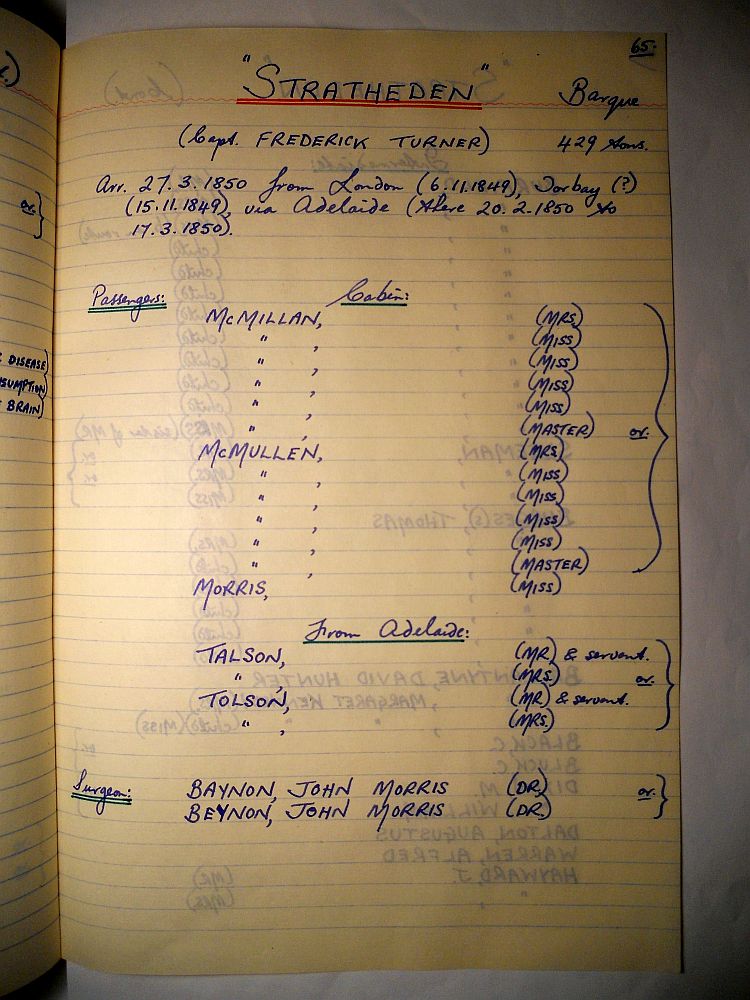 65.
"STRATHEDEN" Barque
(Capt. FREDERICK TURNER) 429 tons.
Arr. 27.3.1850 from London (6.11.1849), Torbay (?)
(15.11.1849), via Adelaide (there 20.2.1850 to
17.3.1850).
Passengers: Cabin:
McMILLAN, (MRS)
" , (MISS)
" , (MISS)
" , (MISS)
" , (MISS)
" , (MASTER) or.
McMULLEN, (MRS)
" , (MISS)
" , (MISS)
" , (MISS)
" , (MISS)
" , (MASTER)
MORRIS, (MISS)
From Adelaide:
TALSON, (MR) & servant.
" , (MRS) or.
TOLSON, (MR) & servant.
" , (MRS)
Surgeon: BAYNON, JOHN MORRIS (DR.) or.
BEYNON, JOHN MORRIS (DR.)
or.
DISEASE)
BRAIN)